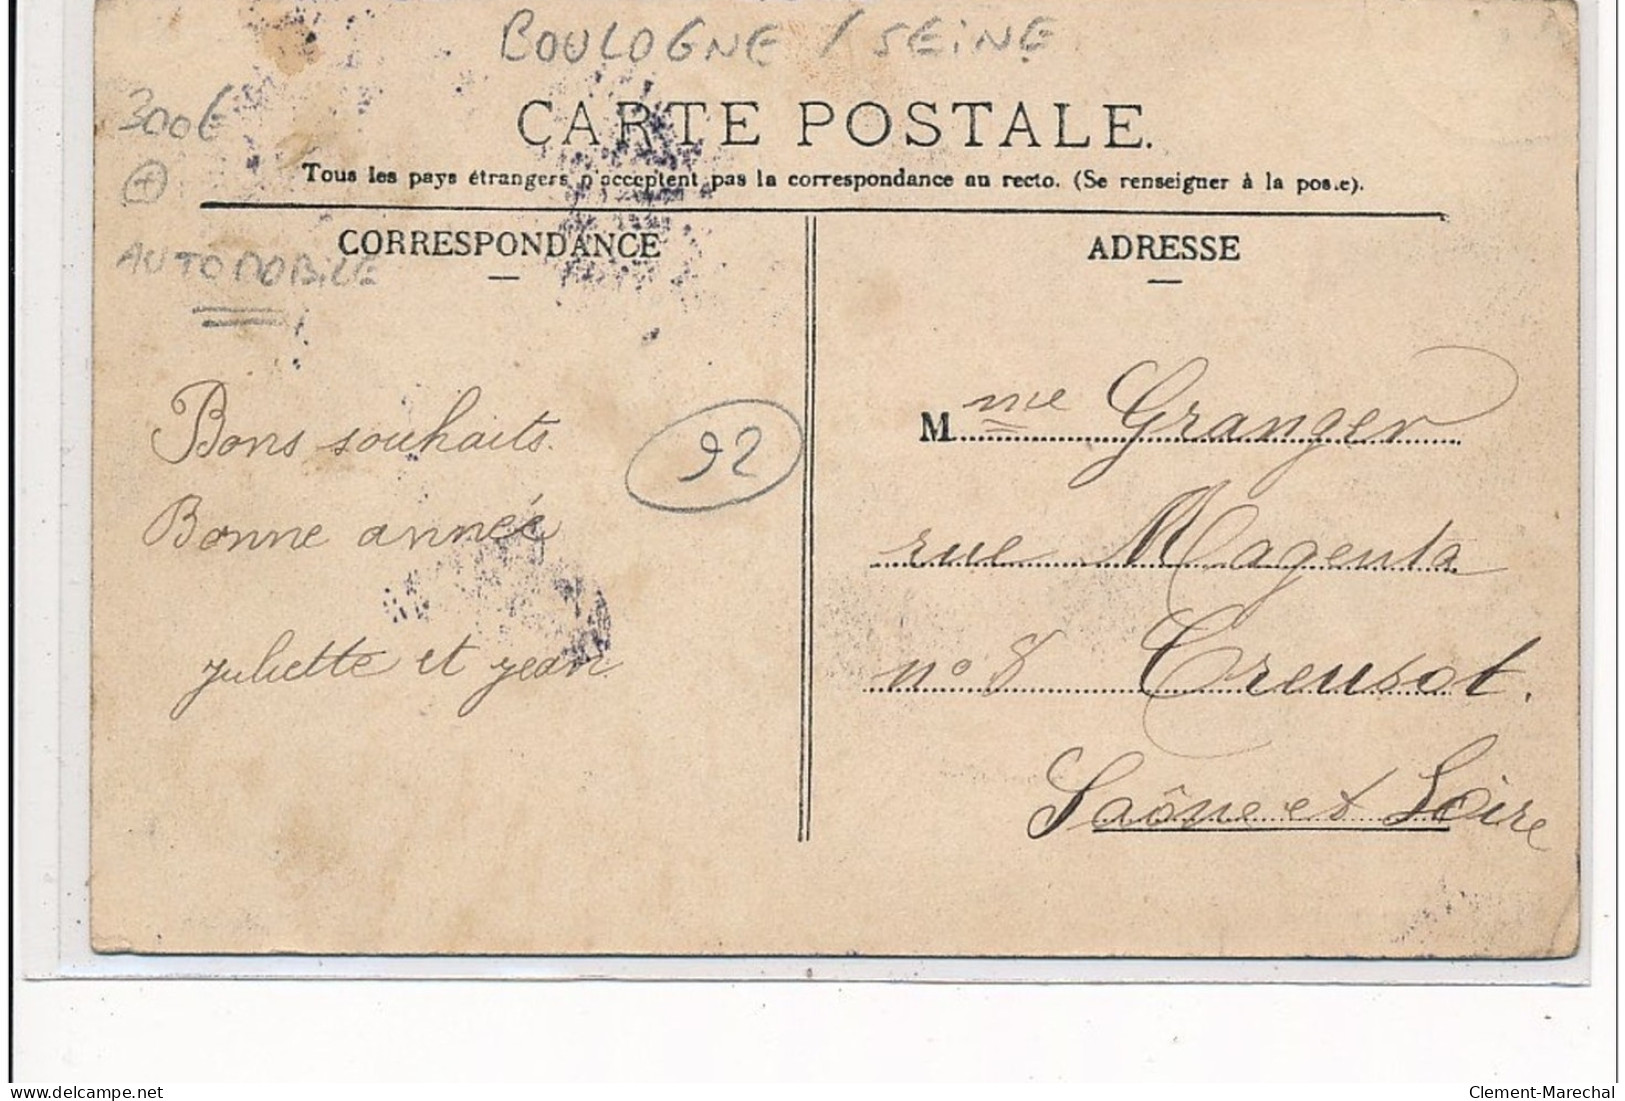 BOULOGNE / SEINE
300€
+
AUTOMOBILE
CARTE POSTALE.
Tous les pays étrangers n'acceptent pas la correspondance au recto. (Se renseigner à la pos.e).
CORRESPONDANCE
ADRESSE
Bons souhaits.
Bonne année
juliette et jean
92
Mme Granger
rue Magenta
n° 8 Creusot.
Saône et Loire
delcampe.net
Clement-Marechal